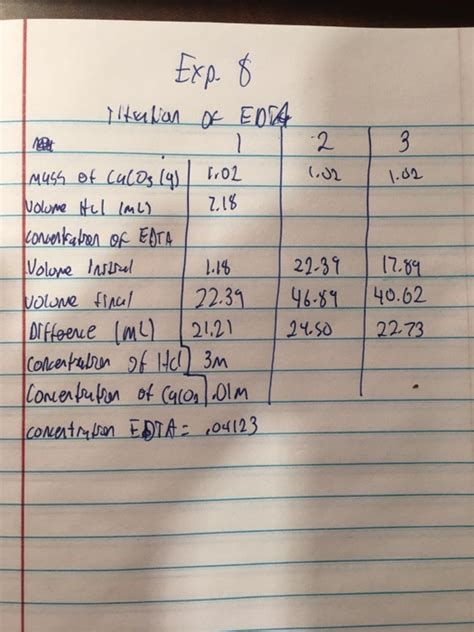 Exp. 8
Titration of EDTA
1 2 3
Mass of CaCO3 (g) 1.02 1.02 1.02
Volume HCl (mL) 7.18
Concentration of EDTA
Volume Initial 1.18 22.39 17.89
Volume final 22.39 46.89 40.62
Difference (mL) 21.21 24.50 22.73
Concentration of HCl 3M
Concentration of CaCO3 .01M
Concentration EDTA = .04123